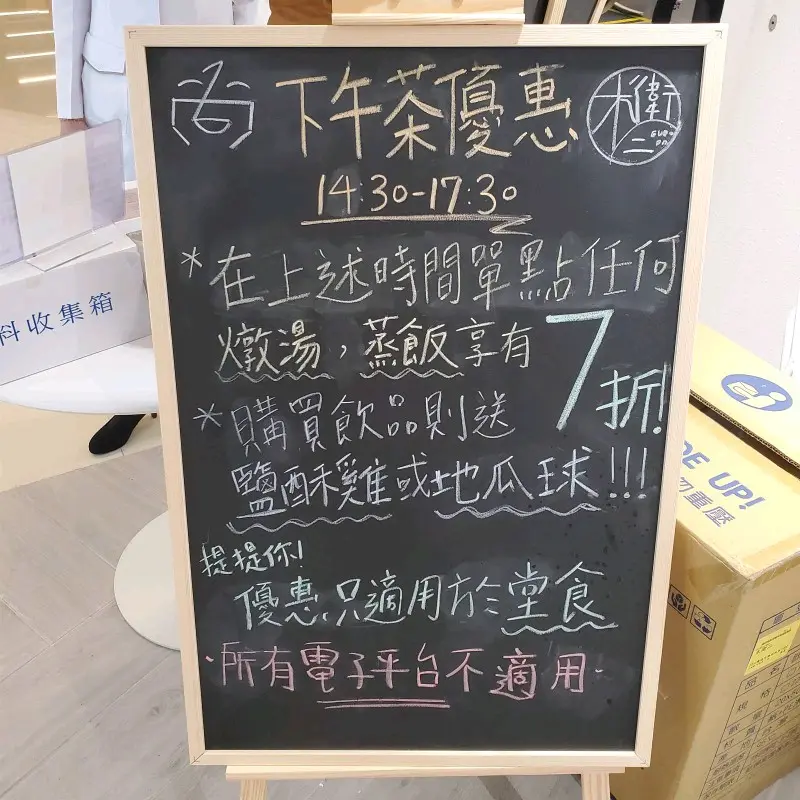 尚 下午茶優惠
14:30-17:30
*在上述時間單點任何
燉湯，蒸飯享有7折!
*購買飲品則送
鹽酥雞或地瓜球!!!
提提你!
優惠只適用於堂食
·所有電子平台不適用·
料收集箱
DE UP!
勿重壓
品名
規格
數量